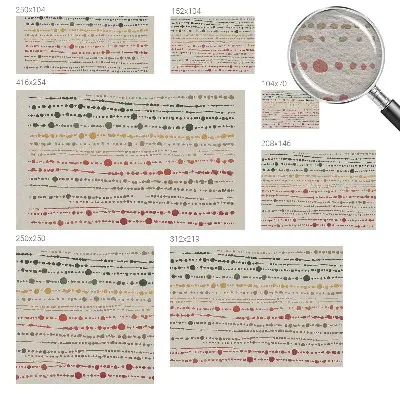 250x104
152x104
416x254
104x70
208x146
250x250
312x219